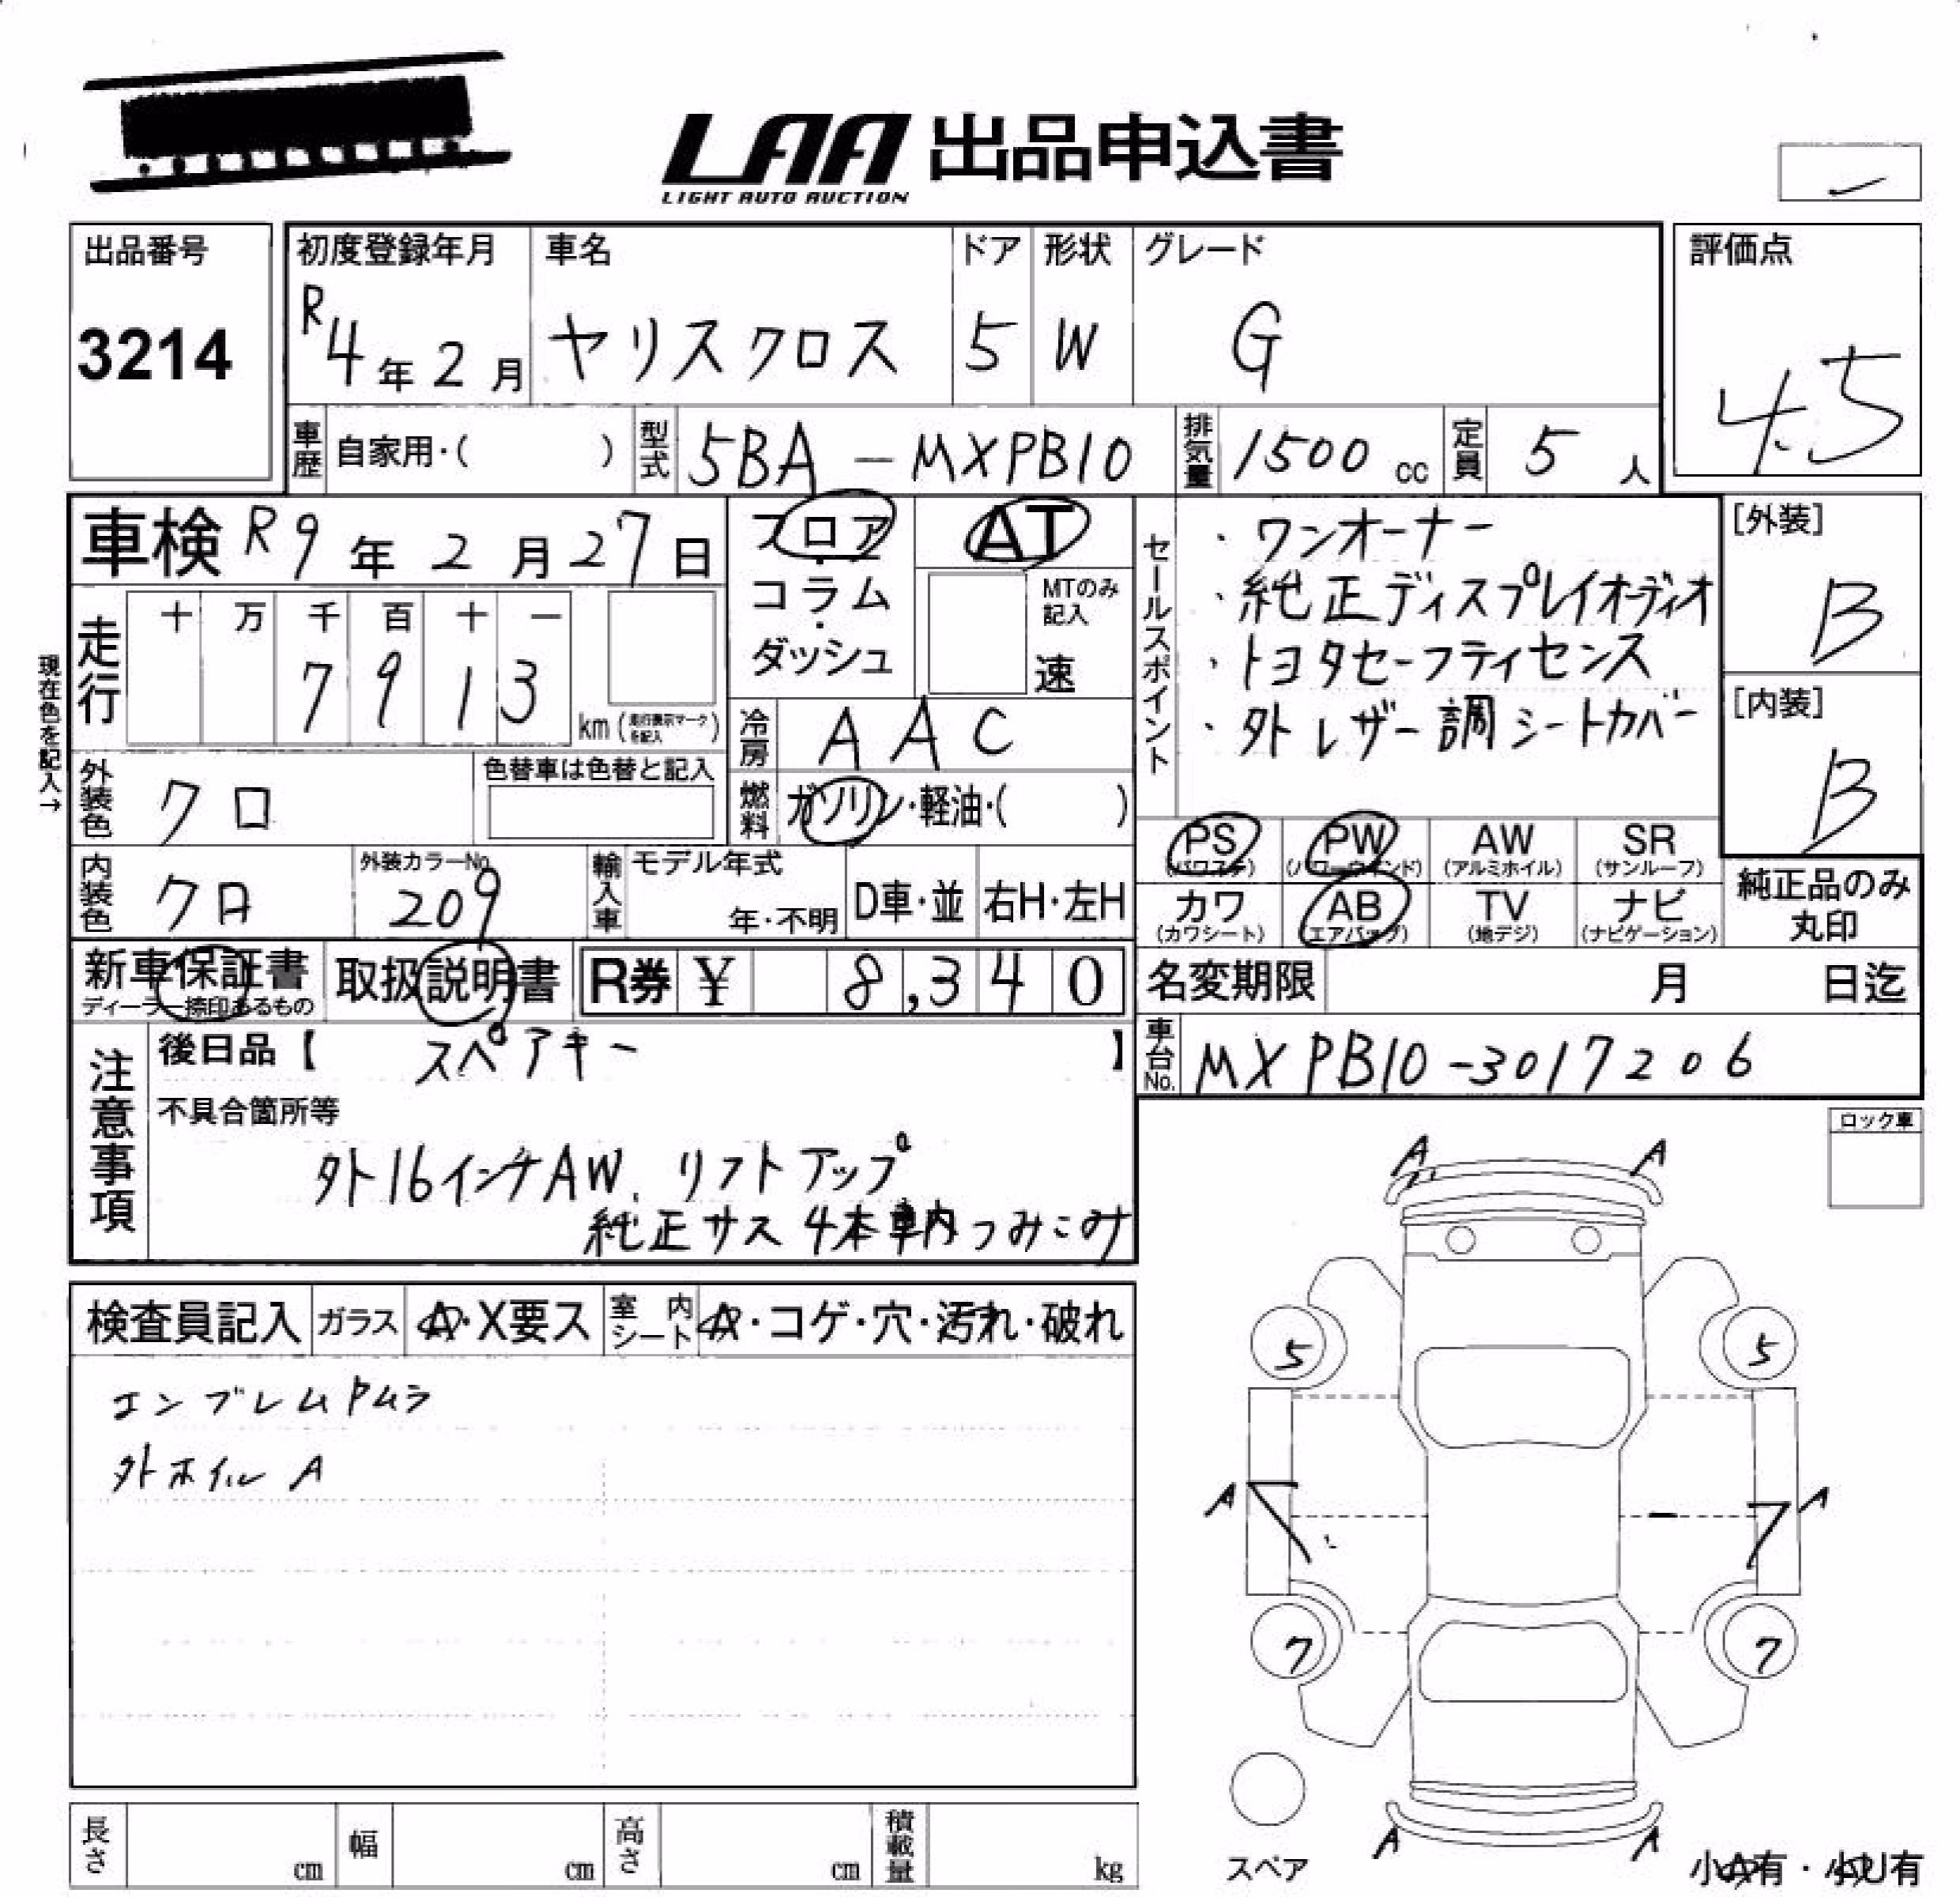 LAA 出品申込書
LIGHT AUTO AUCTION
出品番号
3214
初度登録年月
R4年2月
車名
ヤリスクロス
ドア
5
形状
W
グレード
G
評価点
4.5
車歴 自家用・( )
型式 5BA-MXPB10
排気量 1500 cc
定員 5 人
車検 R9年2月27日
フロア・コラム・ダッシュ
AT
MTのみ記入
速
現在色を記入→
走行
十 万 千 百 十 一
7 9 1 3
km (走行表示マークを記入)
冷房 AAC
燃料 ガソリン・軽油・( )
外装色 クロ
色替車は色替と記入
内装色 クロ
外装カラーNo.
209
輸入車
モデル年式
年・不明
D車・並
右H・左H
セールスポイント
・ワンオーナー
・純正ディスプレイオーディオ
・トヨタセーフティセンス
・外レザー調シートカバー
[外装]
B
[内装]
B
PS (パワステ)
PW (パワーウインド)
AW (アルミホイル)
SR (サンルーフ)
カワ (カワシート)
AB (エアバッグ)
TV (地デジ)
ナビ (ナビゲーション)
純正品のみ
丸印
新車保証書
ディーラー捺印あるもの
取扱説明書
R券 ¥ 8,340
名変期限 月 日迄
車台No. MXPB10-3017206
注意事項
後日品【 スペアキー 】
不具合箇所等
外16インチAW、リフトアップ
純正サス4本車内つみこみ
ロック車
検査員記入
ガラス
A・X要ス
室内シート
A・コゲ・穴・汚れ・破れ
エンブレムPムラ
外ホイルA
A A
5 5
A A
7 7
A A
スペア
小A有・小U有
長さ cm
幅 cm
高さ cm
積載量 kg